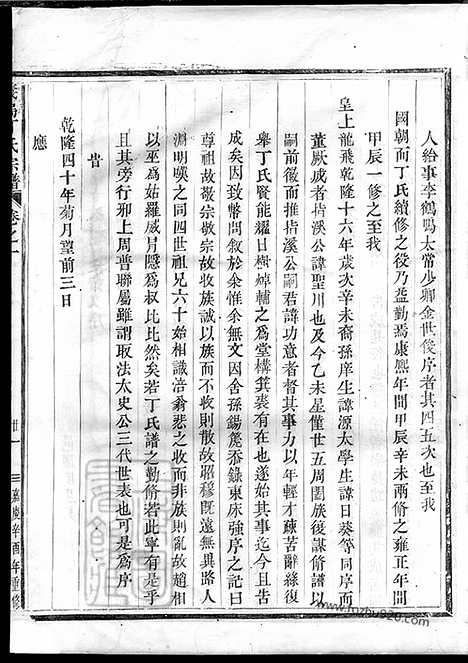 人給事李鶴鳴太常少卿金世俊序者其四五次也至我
國朝而丁氏續修之役乃益勤焉康熙年間甲辰辛未兩脩之雍正年間
甲辰一修之至我
皇上龍飛乾隆十六年歲次辛未裔孫庠生諱源太學生諱日葵等同序而
董厥成者揹溪公諱聖川也及今乙未星僅世五周闔族復謀脩譜以
嗣前徽而推揹溪公嗣君諱功意者督其事力以年輕才疎苦辭緣復
舉丁氏賢能耀日樹焯輔之為堂構箕裘有在矣始其事迄今且告
成矣因致幣問敘於余惟余無文因舍孫錫簑忝錄東床強序之記曰
尊祖故敬宗敬宗故收族誠以族而不收則散故昭穆既遠無異路人
淵明嘆之同四世祖兄六十始相識浯翁悲之收而非族則亂故趙相
以巫為姑羅威月隱為叔比比然矣若丁氏譜之勤脩若此寧有是乎
且其旁行邪上周普聯屬雖謂取法太史公三代世表也可也是為序
旹
乾隆四十年菊月望前三日
應
丁氏宗譜
卷之一
廿一
嘉慶辛酉年重修
www.fuzhu920.com